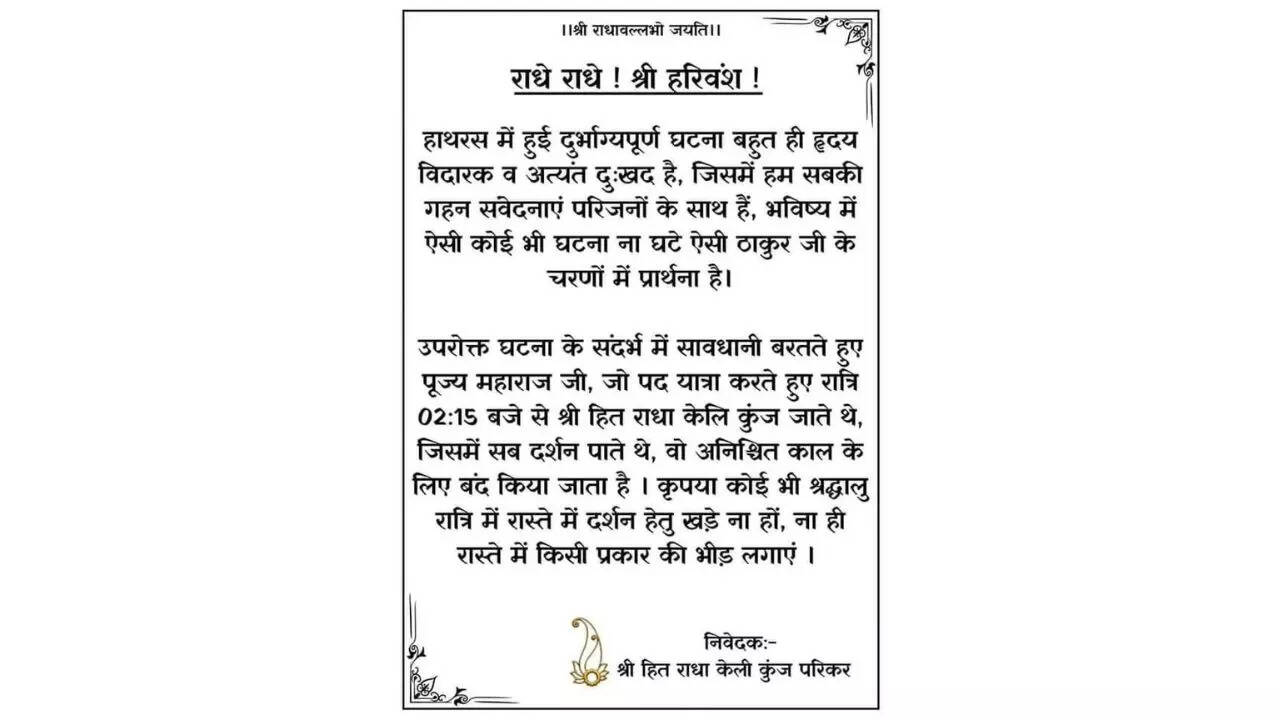 ।।श्री राधावल्लभो जयति।।
राधे राधे ! श्री हरिवंश !
हाथरस में हुई दुर्भाग्यपूर्ण घटना बहुत ही हृदय
विदारक व अत्यंत दुःखद है, जिसमें हम सबकी
गहन संवेदनाएं परिजनों के साथ हैं, भविष्य में
ऐसी कोई भी घटना ना घटे ऐसी ठाकुर जी के
चरणों में प्रार्थना है।
उपरोक्त घटना के संदर्भ में सावधानी बरतते हुए
पूज्य महाराज जी, जो पद यात्रा करते हुए रात्रि
02:15 बजे से श्री हित राधा केलि कुंज जाते थे,
जिसमें सब दर्शन पाते थे, वो अनिश्चित काल के
लिए बंद किया जाता है । कृपया कोई भी श्रद्धालु
रात्रि में रास्ते में दर्शन हेतु खड़े ना हों, ना ही
रास्ते में किसी प्रकार की भीड़ लगाएं ।
निवेदकः-
श्री हित राधा केली कुंज परिकर